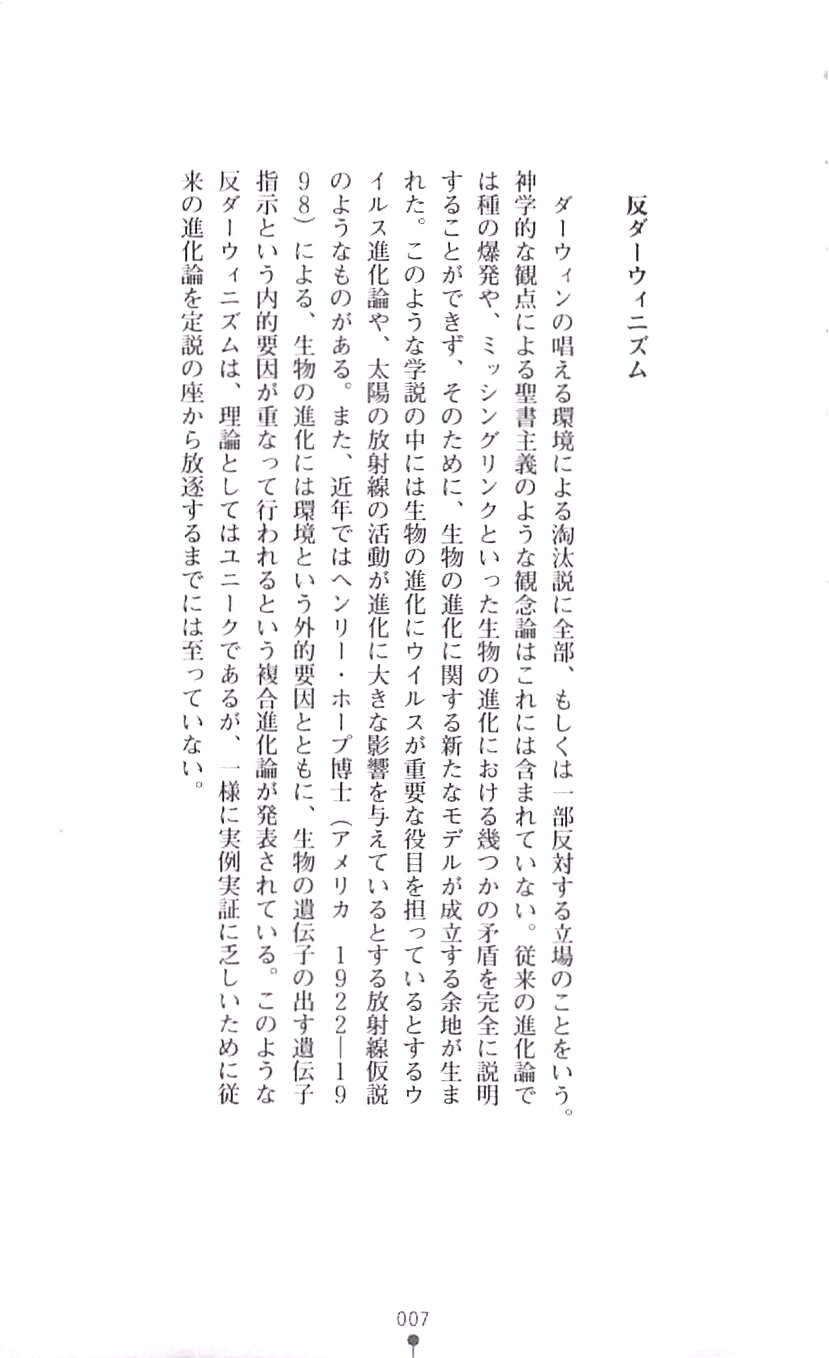 反ダーウィニズム
ダーウィンの唱える環境による淘汰説に全部、もしくは一部反対する立場のことをいう。
神学的な観点による聖書主義のような観念論はこれには含まれていない。従来の進化論で
は種の爆発や、ミッシングリンクといった生物の進化における幾つかの矛盾を完全に説明
することができず、そのために、生物の進化に関する新たなモデルが成立する余地が生ま
れた。このような学説の中には生物の進化にウイルスが重要な役目を担っているとするウ
イルス進化論や、太陽の放射線の活動が進化に大きな影響を与えているとする放射線仮説
のようなものがある。また、近年ではヘンリー・ホープ博士（アメリカ　1922―19
98）による、生物の進化には環境という外的要因とともに、生物の遺伝子の出す遺伝子
指示という内的要因が重なって行われるという複合進化論が発表されている。このような
反ダーウィニズムは、理論としてはユニークであるが、一様に実例実証に乏しいために従
来の進化論を定説の座から放逐するまでには至っていない。
007